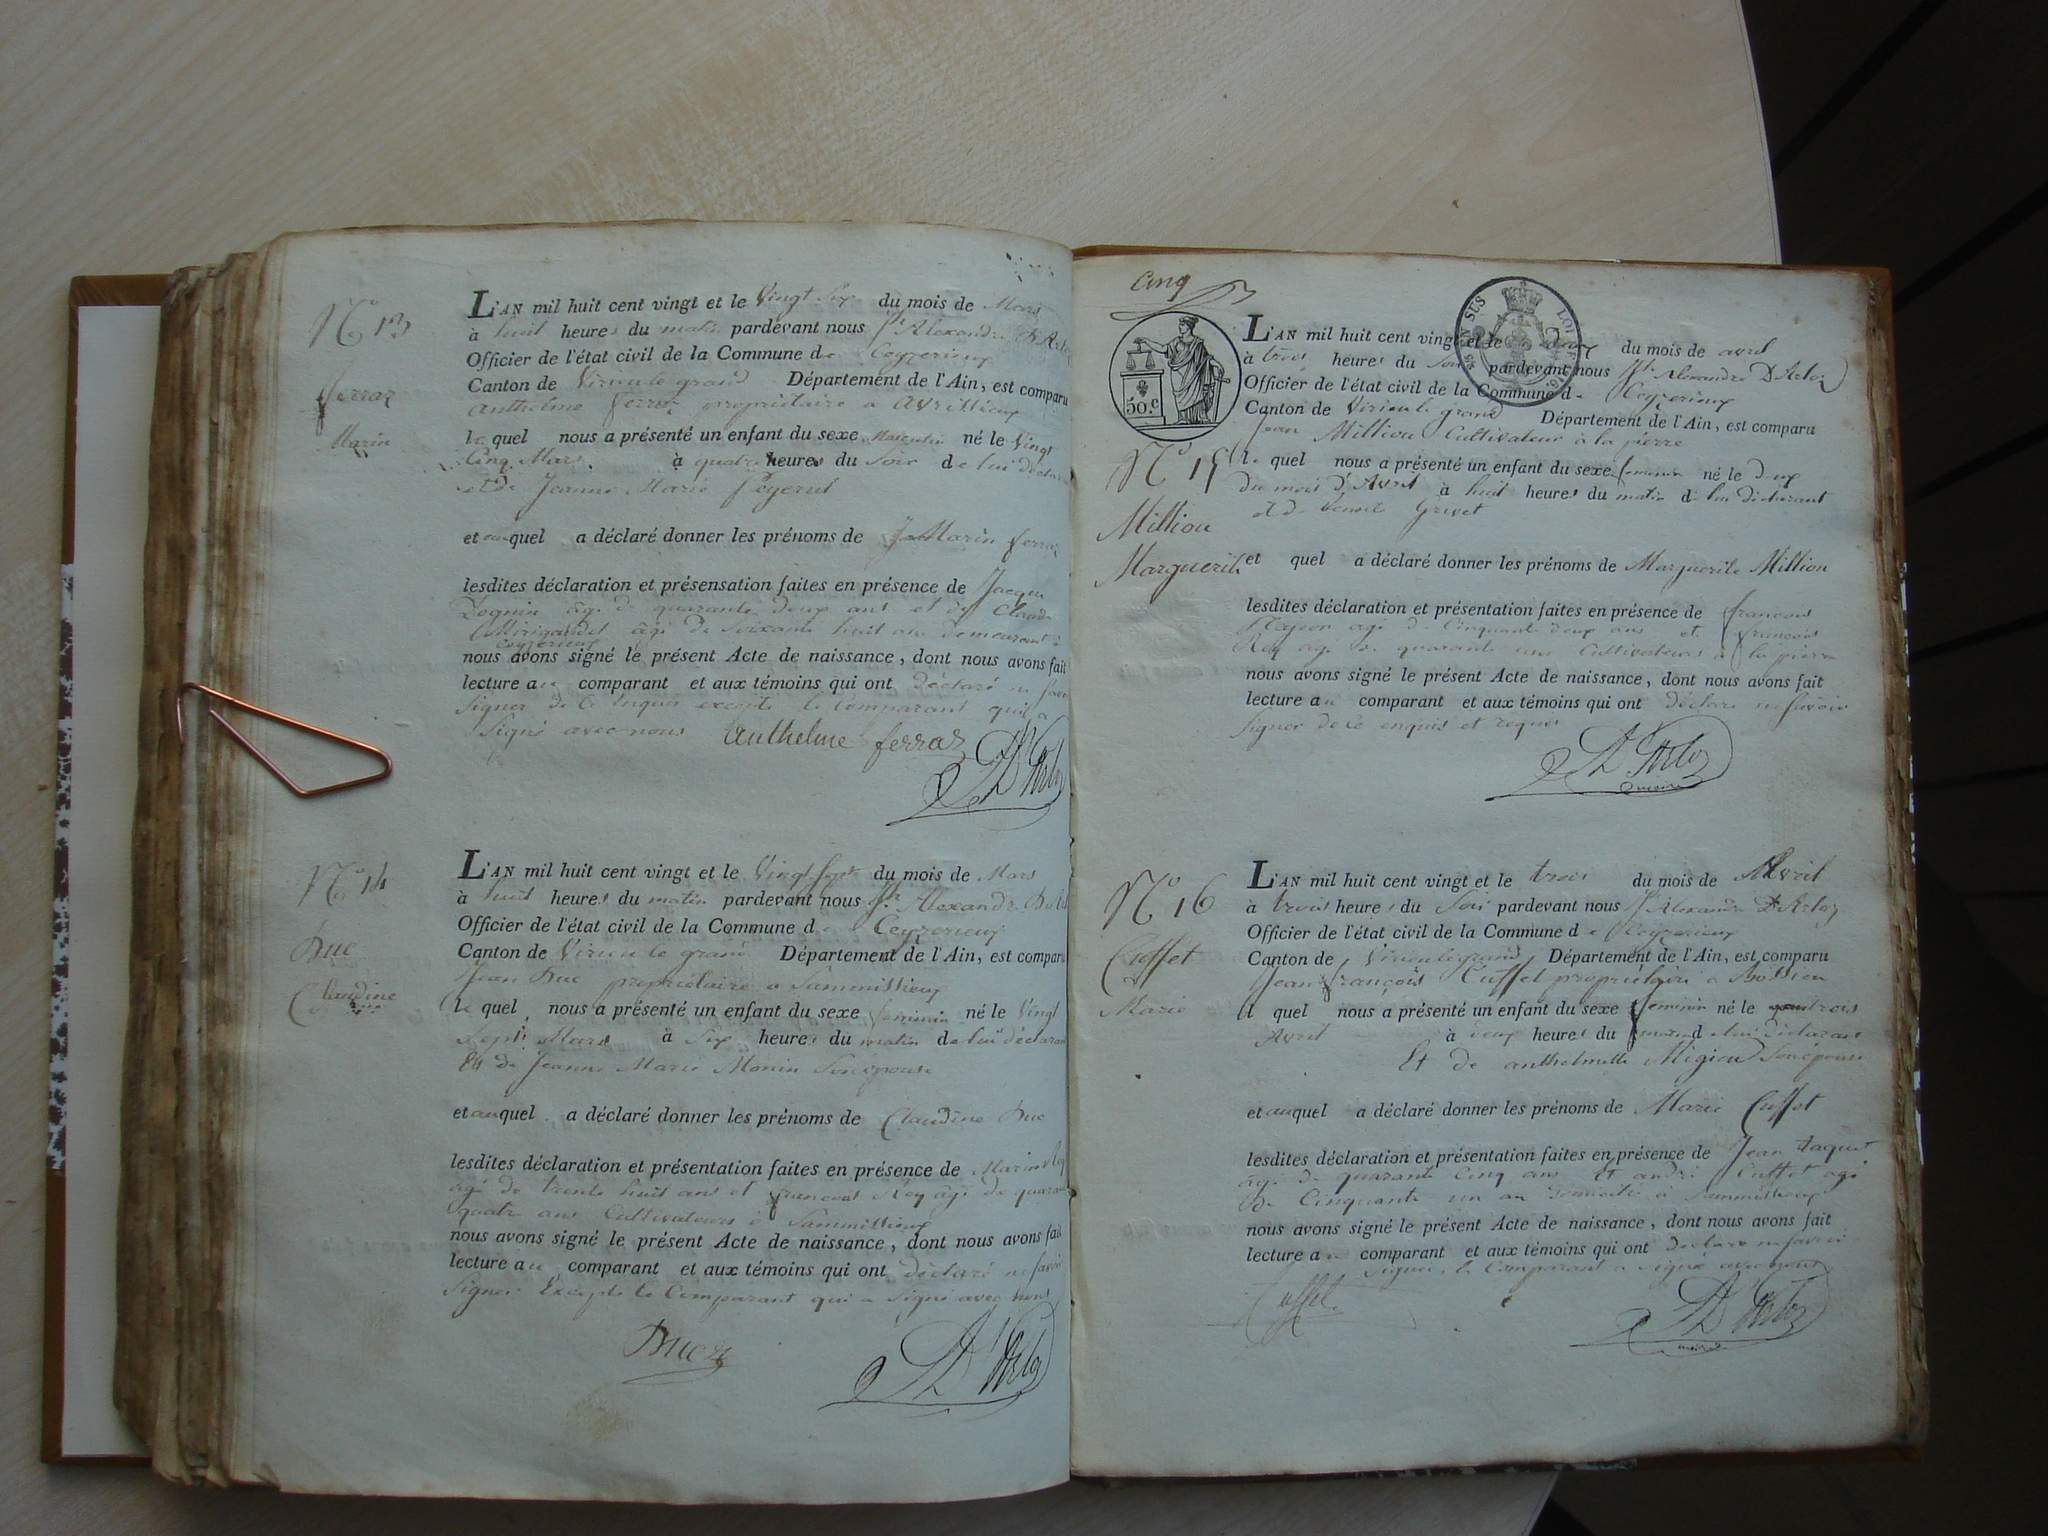 N° 13
ferraz
Marin
L'AN mil huit cent vingt et le Vingt Six du mois de Mars
à huit heures du matin pardevant nous Alexandre D'Arloz
Officier de l'état civil de la Commune de Ceyzerieux
Canton de Virieu le grand Département de l'Ain, est comparu
Anthelme ferraz propriétaire a Avrissieux
le quel nous a présenté un enfant du sexe Masculin né le Vingt
Cinq Mars à quatre heures du Soir de lui déclarant
et de Jeanne Marie
et auquel a déclaré donner les prénoms de Marin ferraz
lesdites déclaration et présensation faites en présence de Jacques
âgé de quarante deux ans et de Claude
âgé de Soixante huit ans demeurant à
Ceyzerieux
nous avons signé le présent Acte de naissance, dont nous avons fait
lecture au comparant et aux témoins qui ont déclaré ne savoir
Signer de ce enquis excepté le comparant qui a
Signé avec nous Anthelme ferraz
D'Arloz
N° 14
Duc
Claudine
L'AN mil huit cent vingt et le Vingt Sept du mois de Mars
à huit heures du matin pardevant nous Alexandre D'Arloz
Officier de l'état civil de la Commune de Ceyzerieux
Canton de Virieu le grand Département de l'Ain, est comparu
Jean Duc propriétaire a Sammissieux
le quel nous a présenté un enfant du sexe feminin né le Vingt
Sept Mars à Six heures du matin de lui déclarant
Et de Jeanne Marie Monin Son épouse
et auquel a déclaré donner les prénoms de Claudine Duc
lesdites déclaration et présentation faites en présence de Marin Rey
âgé de trente huit ans et francois Rey âgé de quarante
quatre ans Cultivateurs à Sammissieux
nous avons signé le présent Acte de naissance, dont nous avons fait
lecture au comparant et aux témoins qui ont déclaré ne savoir
Signer Excepté le Comparant qui a Signé avec nous
Duc
D'Arloz
Cinq
50.c
EN SUS
N° 15
Milliou
Marguerite
L'AN mil huit cent vingt et le deux du mois de avril
à trois heures du Soir pardevant nous Alexandre D'Arloz
Officier de l'état civil de la Commune de Ceyzerieux
Canton de Virieu le grand Département de l'Ain, est comparu
Jean Milliou Cultivateur à la pierre
le quel nous a présenté un enfant du sexe feminin né le deux
du mois d'Avril à huit heures du matin de lui déclarant
et de benoite Grivet
et quel a déclaré donner les prénoms de Marguerite Million
lesdites déclaration et présentation faites en présence de francois
agé de Cinquante deux ans et francois
Rey agé de quarante Cultivateurs à la pierre
nous avons signé le présent Acte de naissance, dont nous avons fait
lecture au comparant et aux témoins qui ont déclaré ne savoir
Signer de ce enquis et requis
D'Arloz
N° 16
Cuffet
Marie
L'AN mil huit cent vingt et le trois du mois de Avril
à trois heures du Soir pardevant nous Alexandre D'Arloz
Officier de l'état civil de la Commune de Ceyzerieux
Canton de Virieu le grand Département de l'Ain, est comparu
Jean françois Cuffet propriétaire a
le quel nous a présenté un enfant du sexe feminin né le trois
Avril à deux heures du matin de lui déclarant
Et de anthelmette Migiou Son épouse
et auquel a déclaré donner les prénoms de Marie Cuffet
lesdites déclaration et présentation faites en présence de Jean taquet
âgé de quarante Cinq ans Et andré Cuffet agé
de Cinquante un an domicilié à Sammissieux
nous avons signé le présent Acte de naissance, dont nous avons fait
lecture au comparant et aux témoins qui ont déclaré ne savoir
Signer, le Comparant a signé avec nous
Cuffet
D'Arloz